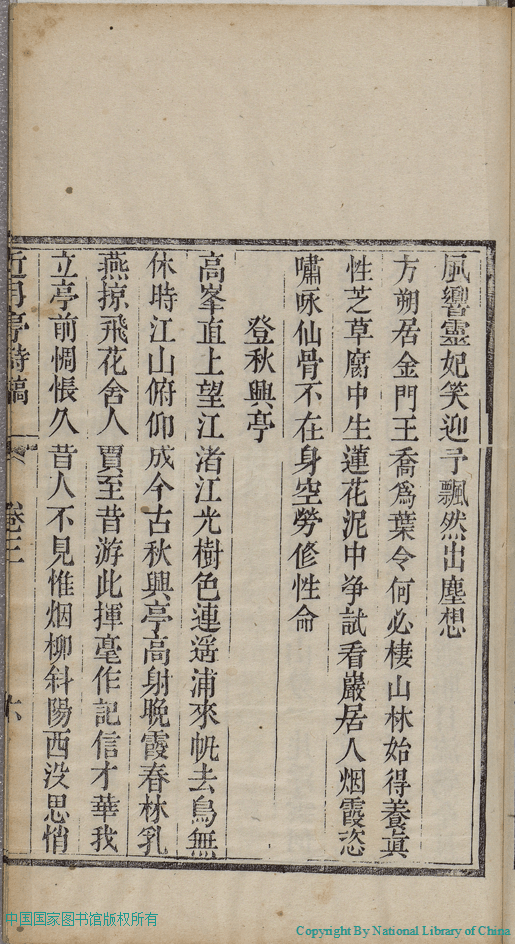 風響靈妃笑迎予飄然出塵想
方朔居金門王喬爲葉令何必棲山林始得養眞
性芝草腐中生蓮花泥中爭試看巖居人烟霞恣
嘯咏仙骨不在身空勞修性命
登秋興亭
高峯直上望江渚江光樹色連遥浦來帆去鳥無
休時江山俯仰成今古秋興亭高射晚霞春林乳
燕掠飛花舍人賈至昔游此揮毫作記信才華我
立亭前惆悵久昔人不見惟烟柳斜陽西没思悄
近月亭詩稿 卷三 六
中国国家图书馆版权所有
Copyright By National Library of China